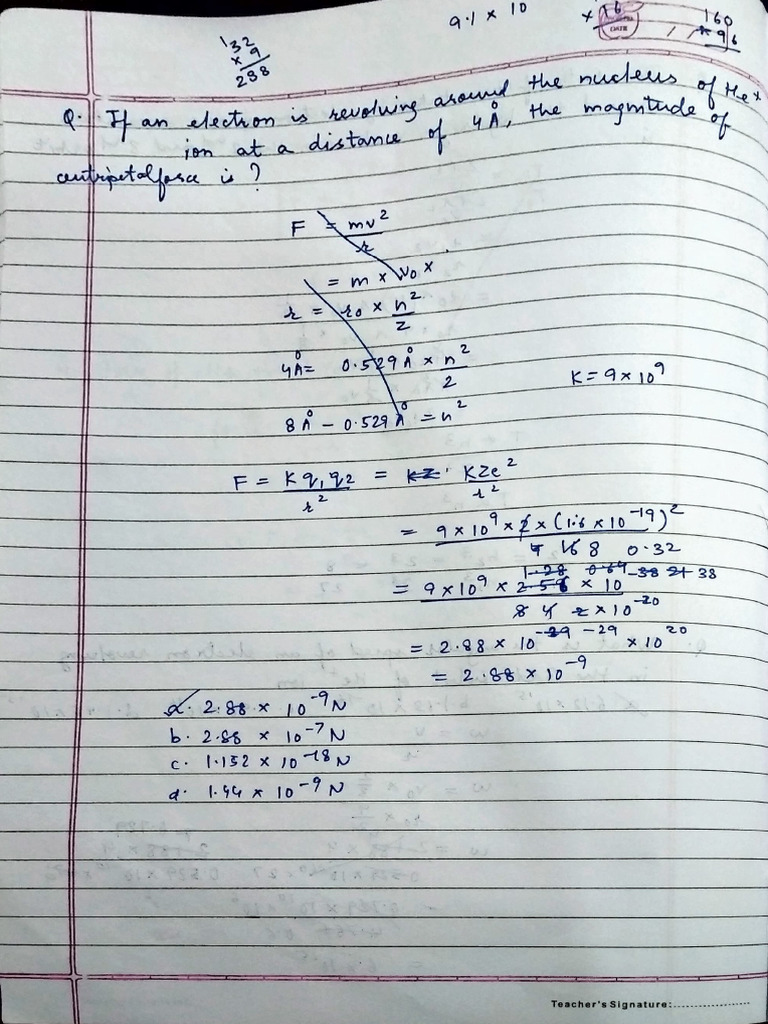 9.1 × 10
160
× 96
DATE
32
× 9
288
Q. If an electron is revolving around the nucleus of He+
ion at a distance of 4Å, the magnitude of
centripetal force is ?
F = mv²/r
= m × v₀ ×
r = r₀ × n²/Z
4Å = 0.529Å × n²/2
K = 9 × 10⁹
8Å - 0.529Å = n²
F = Kq₁q₂/r² = KZ KZe²/r²
= 9 × 10⁹ × 2 × (1.6 × 10⁻¹⁹)²
4 16 8 0.32
1.28 0.64 -38 21 38
= 9 × 10⁹ × 2.56 × 10
8 4 2 × 10⁻²⁰
= 2.88 × 10⁻²⁹ ⁻²⁹ × 10²⁰
= 2.88 × 10⁻⁹
a. 2.88 × 10⁻⁹ N
b. 2.88 × 10⁻⁷ N
c. 1.152 × 10⁻¹⁸ N
d. 1.44 × 10⁻⁹ N
Teacher's Signature: